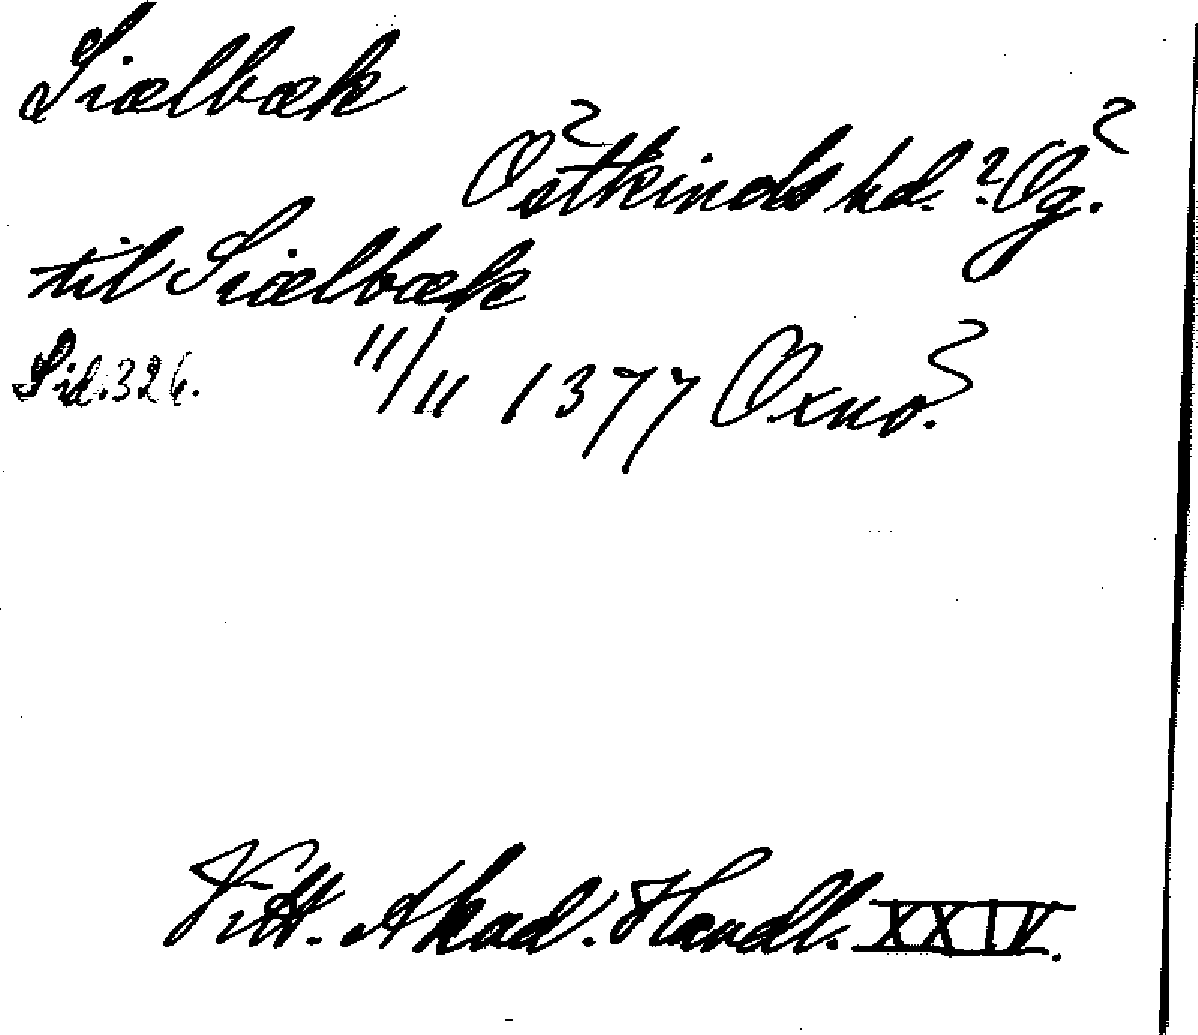 Siælbæk
Östkinds hd. ? Ög.
til Siælbæk
Sid. 326. 11/11 1377 Oxnö.
Vitt. Akad. Handl. XXIV.